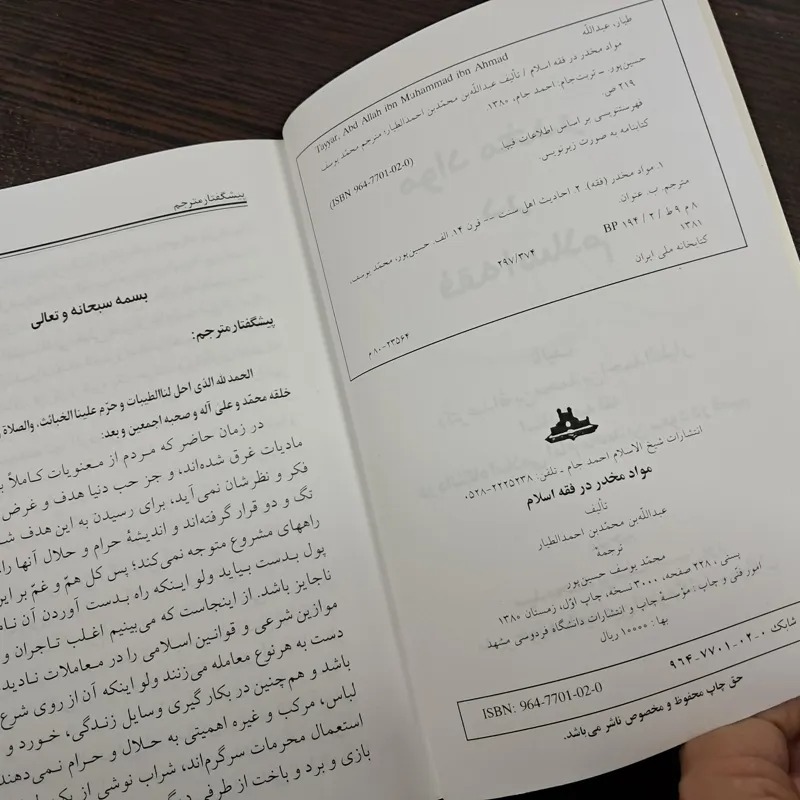 طیار، عبدالله
Tayyar, Abd Allah ibn Muhammad ibn Ahmad
مواد مخدر در فقه اسلام / تألیف عبدالله‌بن محمدبن احمدالطیار؛ مترجم محمد یوسف
حسین‌پور. – تربت‌جام: احمد جام، ۱۳۸۰.
۲۱۹ ص.
(ISBN 964-7701-02-0)
فهرستنویسی بر اساس اطلاعات فیپا.
کتابنامه به صورت زیرنویس.
۱. مواد مخدر (فقه). ۲. احادیث اهل سنت -- قرن ۱۴. الف. حسین‌پور، محمد یوسف،
مترجم. ب. عنوان.
۸ م ۹ ط / ۲ / ۱۹۴ BP
۲۹۷/۳۷۴
۱۳۸۱
کتابخانه ملی ایران
۸۰-۲۳۵۶۴م
انتشارات شیخ الاسلام احمد جام ـ تلفن: ۲۲۲۵۲۳۸-۰۵۲۸
مواد مخدر در فقه اسلام
تألیف
عبدالله‌بن محمّدبن احمدالطیار
ترجمهٔ
محمّد یوسف حسین‌پور
۲۲۸۰ صفحه، ۳۰۰۰ نسخه، چاپ اوّل، زمستان ۱۳۸۰
امور فنّی و چاپ : مؤسسهٔ چاپ و انتشارات دانشگاه فردوسی مشهد
بها: ۱۰۰۰۰ ریال
شابک ۰-۰۲-۷۷۰۱-۹۶۴
ISBN: 964-7701-02-0
حق چاپ محفوظ و مخصوص ناشر می‌باشد.
پیشگفتار مترجم
بسمه سبحانه و تعالی
پیشگفتار مترجم:
الحمدلله الذی احل لنا الطیبات و حرّم علینا الخبائث، والصلاة
خلقه محمّد و علی آله و صحبه اجمعین و بعد:
در زمان حاضر که مردم از معنویات کاملاً
مادیات غرق شده‌اند، و جز حب دنیا هدف و غرض
فکر و نظرشان نمی‌آید، برای رسیدن به این هدف
تگ و دو قرار گرفته‌اند و اندیشهٔ حرام و حلال آنها را
راههای مشروع متوجه نمی‌کند؛ پس کل همّ و غمّ بر این
پول بدست بیاید ولو اینکه راه بدست آوردن آن
ناجایز باشد. از اینجاست که می‌بینیم اغلب تاجران و
موازین شرعی و قوانین اسلامی را در معاملات
دست به هرنوع معامله می‌زنند ولو اینکه آن از روی شرع
باشد و هم‌چنین در بکار گیری وسایل زندگی، خورد و
لباس، مرکب و غیره اهمیتی به حلال و حرام نمی‌دهند
استعمال محرمات سرگرم‌اند، شراب نوشی از
بازی و برد و باخت از طرفی